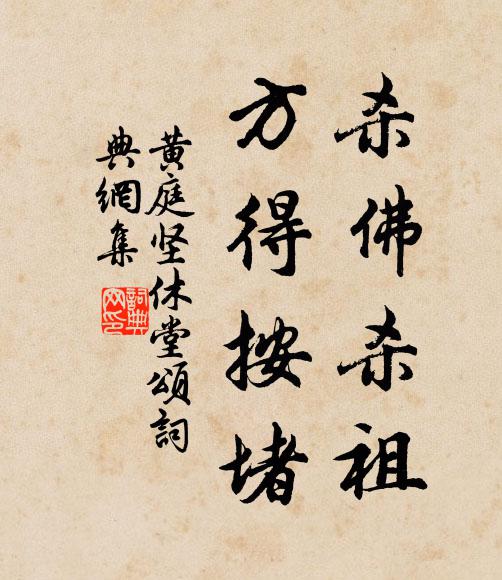 杀佛杀祖
方得按堵
黄庭坚休堂颂词
典網集
詞典
网印